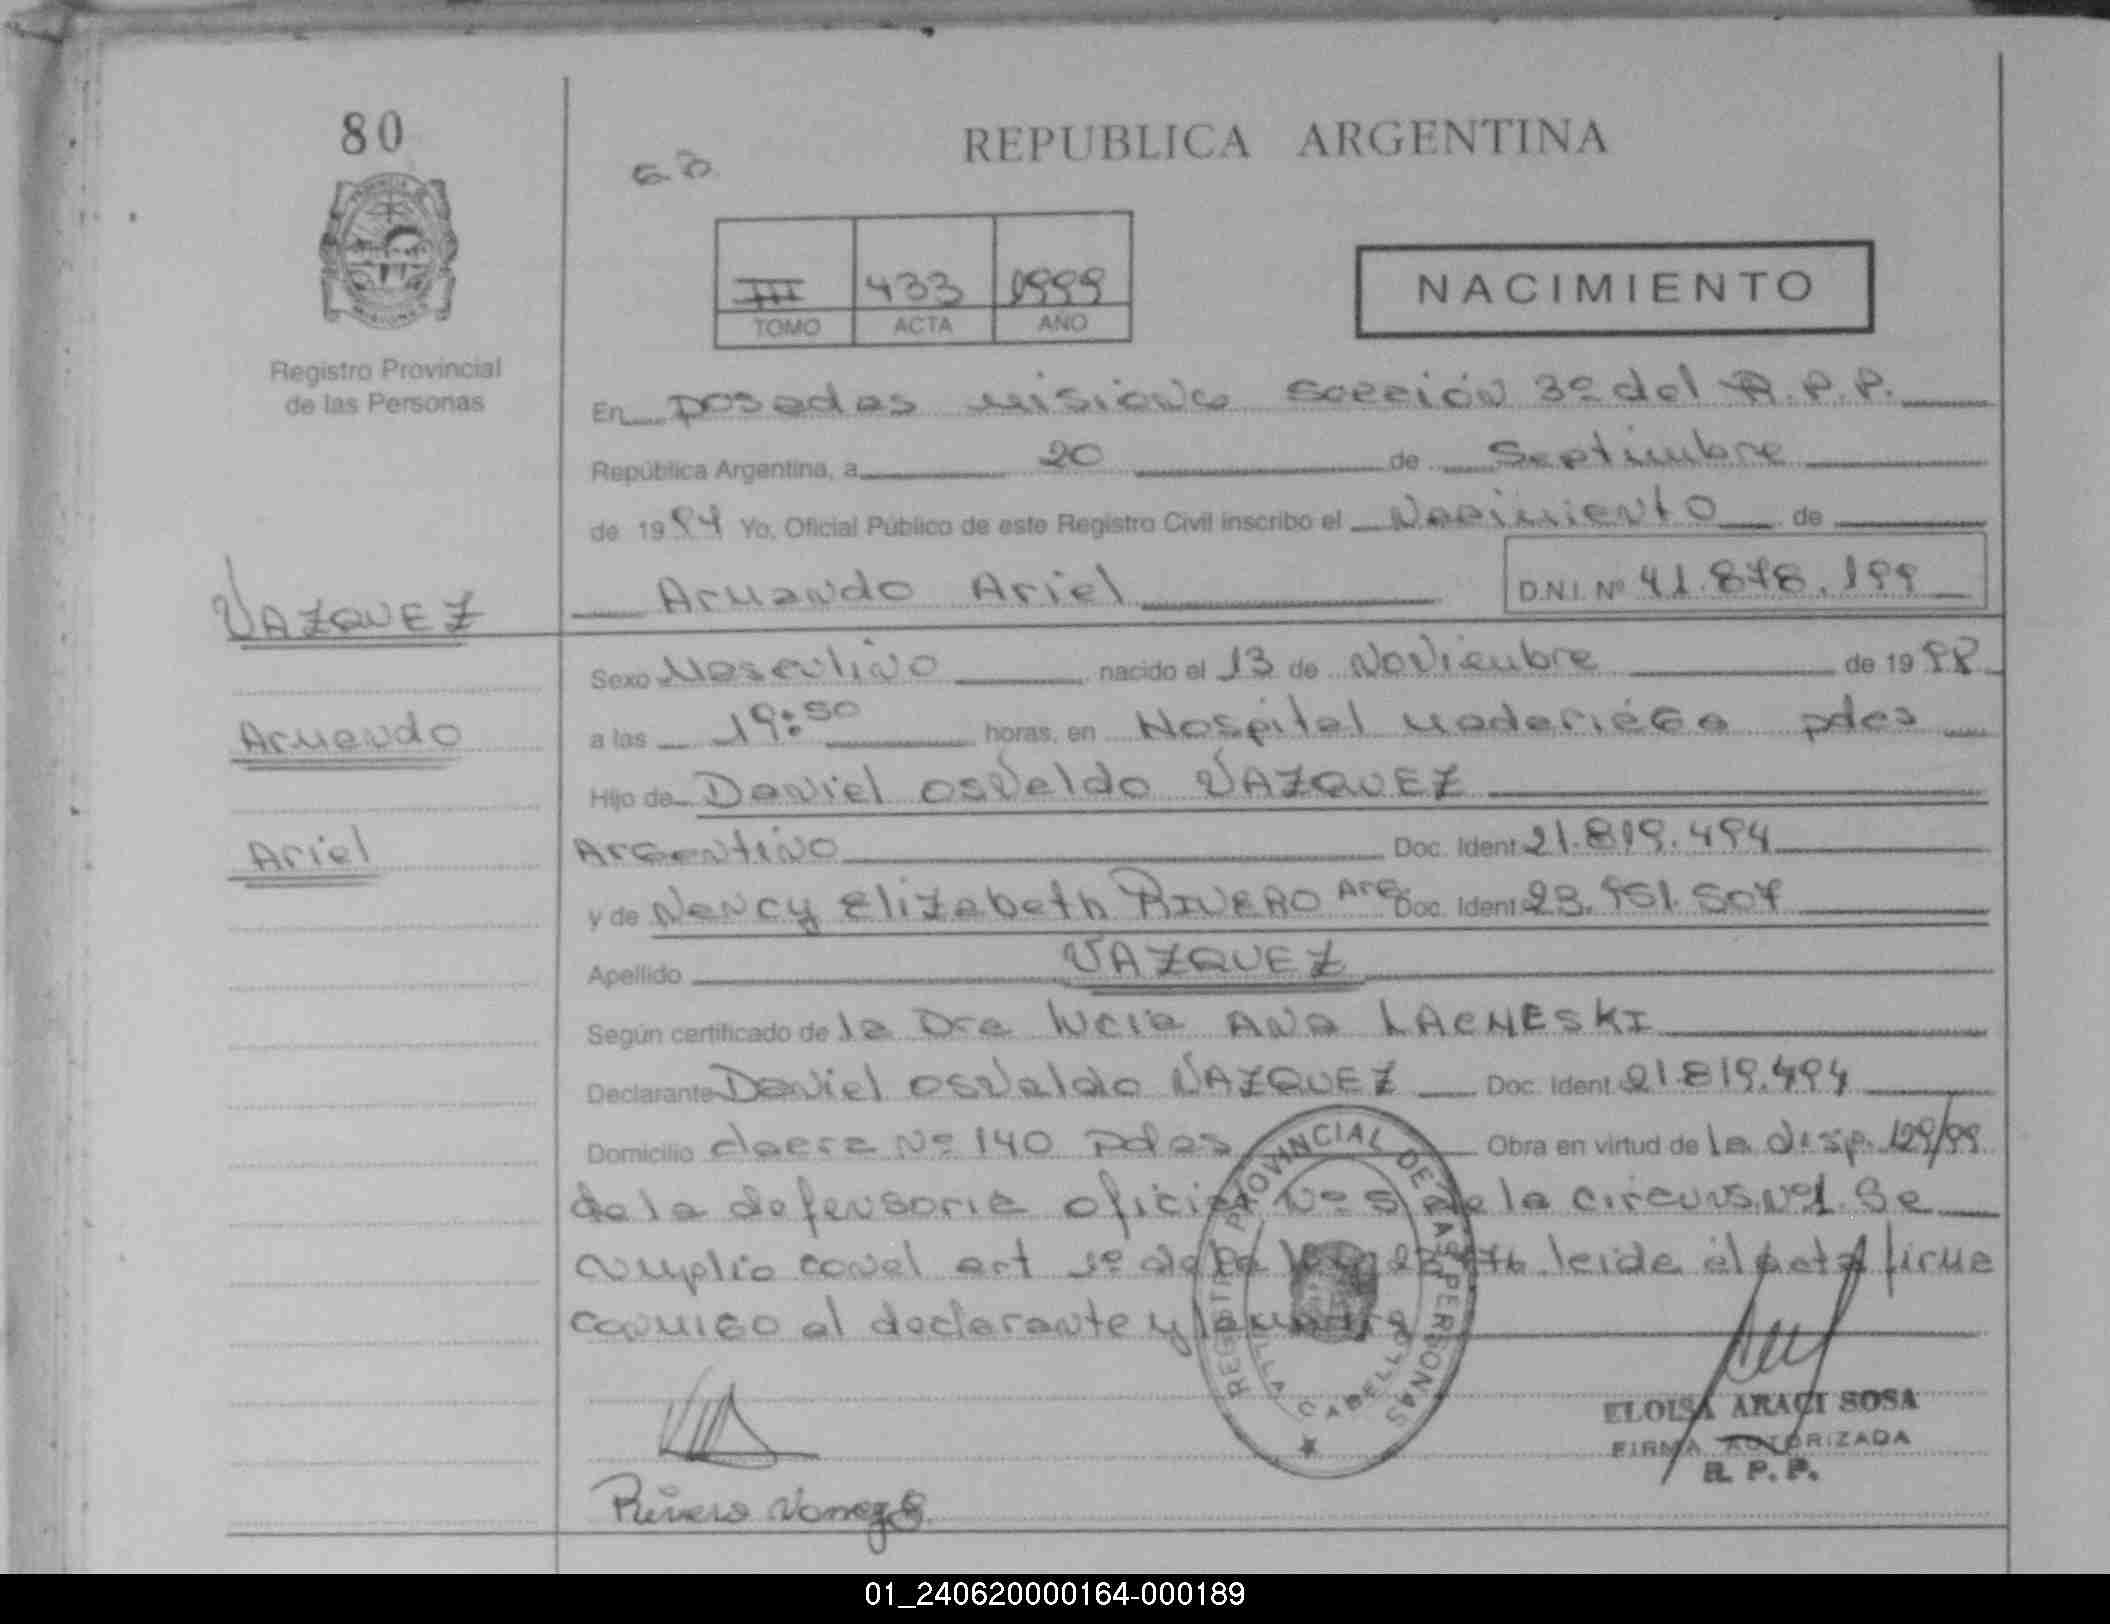 80
REPUBLICA ARGENTINA
III 433 1999
TOMO ACTA AÑO
NACIMIENTO
Registro Provincial
de las Personas
En posadas misiones sección 3º del R.P.P.
República Argentina, a 20 de Septiembre
de 1999 Yo, Oficial Público de este Registro Civil inscribo el Nacimiento de
Armando Ariel D.N.I. Nº 41.878.199
VAZQUEZ
Armando
Ariel
Sexo Masculino nacido el 13 de Noviembre de 1998
a las 19:50 horas, en Hospital madariaga pdas
Hijo de Daniel osvaldo VAZQUEZ
Argentino Doc. Ident 21.819.494
y de Nancy Elizabeth RIVERO Arg Doc. Ident 23.951.507
Apellido VAZQUEZ
Según certificado de la Dra Lucia Ana LACHESKI
Declarante Daniel osvaldo VAZQUEZ Doc. Ident 21.819.494
Domicilio nº 140 pdas Obra en virtud de la disp. 129/99
de la defensoria oficial nº 5 de la circuns. nº1. Se
cumplio con el art 1º de la leida el acta firma
conmigo el declarante y la madre
REGISTRO PROVINCIAL DE LAS PERSONAS
VILLA CABELLO
ELOISA ARACI SOSA
FIRMA AUTORIZADA
R. P. P.
Rivero Nancy E.
01_240620000164-000189